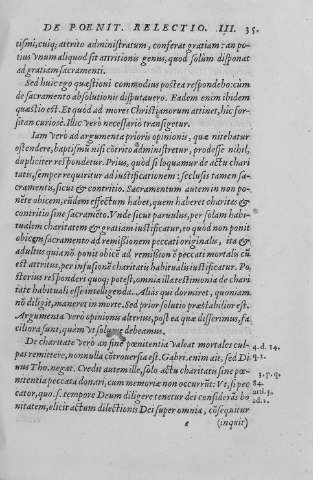 DE POENIT. RELECTIO. III. 35.
tismi, cuiq; attrito administratum, conferat gratiam: an po-
tius vnum aliquod sit attritionis genus, quod solùm disponat
ad gratiam sacramenti.
Sed huic ego quæstioni commodius postea respondebo: cùm
de sacramento absolutionis disputauero. Eadem enim ibidem
quæstio est. Et quod ad mores Christianorum attinet, hîc for-
sitan curiosè. Illîc verò necessariò transigetur.
Iam verò ad argumenta prioris opinionis, quæ nitebatur
ostendere, baptismũ nisi cõtritο administretur, prodesse nihil,
dupliciter respondetur. Prius, quòd si loquamur de actu chari
tatis, semper requiritur ad iustificationem: seclusis tamen sa-
cramentis, sicut & contritio. Sacramentum autem in non po-
nẽte obicem, eũdem effectum habet, quem haberet charitas &
contritio sine sacramẽto. Vnde sicut paruulus, per solam habi-
tualim charitatem & gratiam iustificatur, eo quod non ponit
obicem sacramento ad remißionem peccati originalis, ita &
adultus quia nõ ponit obicẽ ad remißionẽ peccati mortalis cũ
est attritus, per infusionẽ charitatis habitualis iustificatur. Po
sterius responderi quoq; potest, omnia illa testimonia de chari
tate habituali esse intelligenda. Alias qui dormiret, quoniam
nõ diligit, maneret in morte. Sed prior solutio præstabilior est.
Argumenta verò opinionis alterius, post ea quæ disserimus, fa-
ciliora sunt, quàm vt soluere debeamus.
De charitate verò an sine pœnitentia valeat mortales cul-
pas remittere, nonnulla cõtrouersia est. Gabri. enim ait, sed Di
uus Tho. negat. Credit autem ille, solo actu charitatis sine pœ-
nitentia peccata donari, cum memoriæ non occurrũt: Vt, si pec
cator, quo. s. tempore Deum diligere tenetur dei considerãs bo
nitatem, elicit actum dilectionis Dei super omnia, cõsequitur
4. d. 14.
q. 1.
3. p. q.
84.
arti. 3.
ad. 2.
e
(inquit)